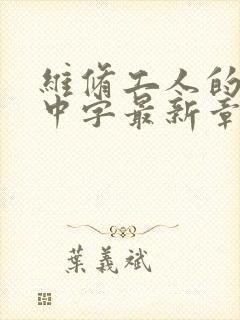 維脩工人的
中字最新章
葉義斌